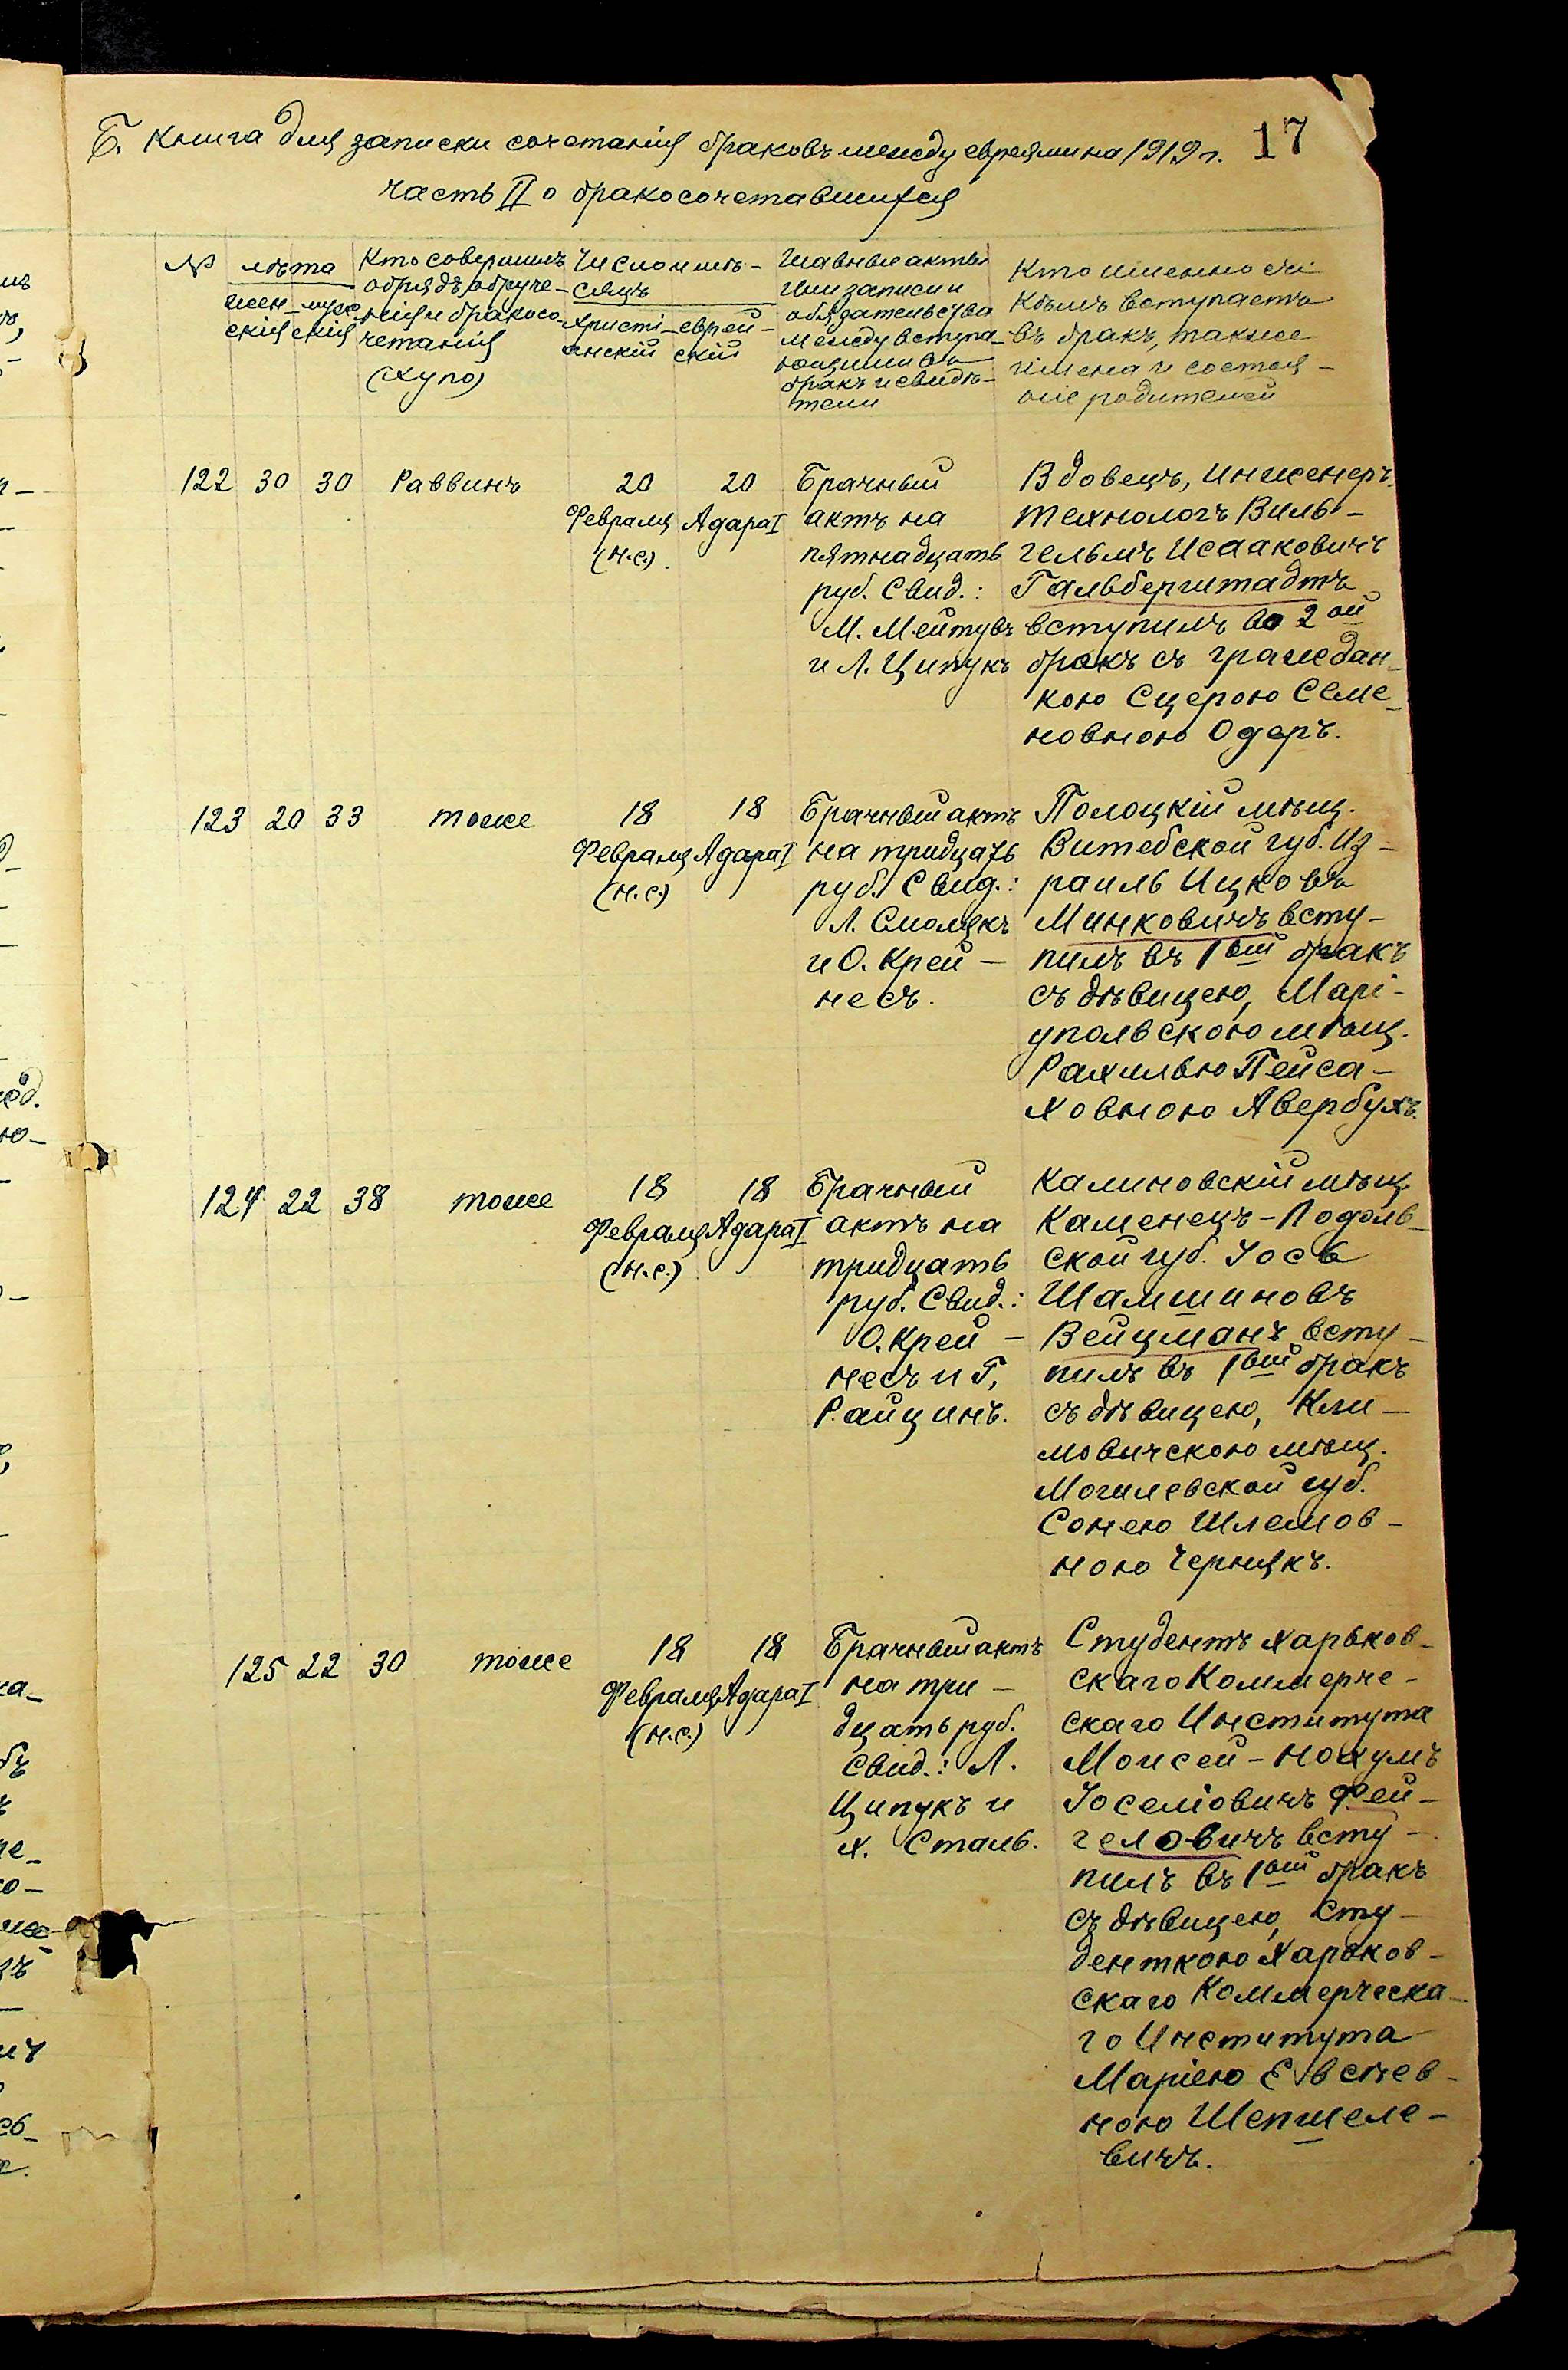 Б. Книга для записки сочетанія браковъ между евреями на 1919 г. 17
часть II о бракосочетавшихся
№
лѣта
жен- муж-
скія скія
Кто совершилъ
обрядъ обруче-
нія и бракосо-
четанія
(хупо)
Число и мѣ-
сяцъ
Христі- еврей-
анскій скій
Главные акты
или записи и
обязательства
между вступа-
ющими въ
бракъ и свидѣ-
тели
Кто именно съ
кѣмъ вступаетъ
въ бракъ, также
имена и состоя-
ніе родителей
122 30 30 Раввинъ
20 20
Февраля Адара I
(н.с.)
Брачный
актъ на
пятнадцать
руб. Свид.:
М. Мейтувъ
и Л. Ципукъ
Вдовецъ, инженеръ
технологъ Виль-
гельмъ Исааковичъ
Гальберштадтъ
вступилъ во 2ой
бракъ съ граждан-
кою Сцерою Семе-
новною Одеръ.
123 20 33 тоже
18 18
Февраля Адара I
(н.с.)
Брачный актъ
на тридцать
руб. Свид.:
Л. Смолякъ
и О. Крей-
несъ.
Полоцкій мѣщ.
Витебской губ. Из-
раиль Ицковъ
Минковичъ всту-
пилъ въ 1вый бракъ
съ дѣвицею, Марі-
упольскою мѣщ.
Рахилью Пейса-
ховною Авербухъ.
124 22 38 тоже
18 18
Февраля Адара I
(н.с.)
Брачный
актъ на
тридцать
руб. Свид.:
О. Крей-
несъ и Г.
Райцинъ.
Калиновскій мѣщ.
Каменецъ-Подоль-
ской губ. Іось
Шамшиновъ
Вейцманъ всту-
пилъ въ 1вый бракъ
съ дѣвицею, Кли-
мовичскою мѣщ.
Могилевской губ.
Сонею Шлемов-
ною Чернякъ.
125 22 30 тоже
18 18
Февраля Адара I
(н.с.)
Брачный актъ
на три-
дцать руб.
Свид.: Л.
Ципукъ и
Х. Сталь.
Студентъ Харьков-
скаго Коммерче-
скаго Института
Моисей-Нохумъ
Іоселіовичъ Фей-
геловичъ всту-
пилъ въ 1вый бракъ
съ дѣвицею, сту-
денткою Харьков-
скаго Коммерческа-
го Института
Маріею Евсѣев-
ною Шепшеле-
вичъ.